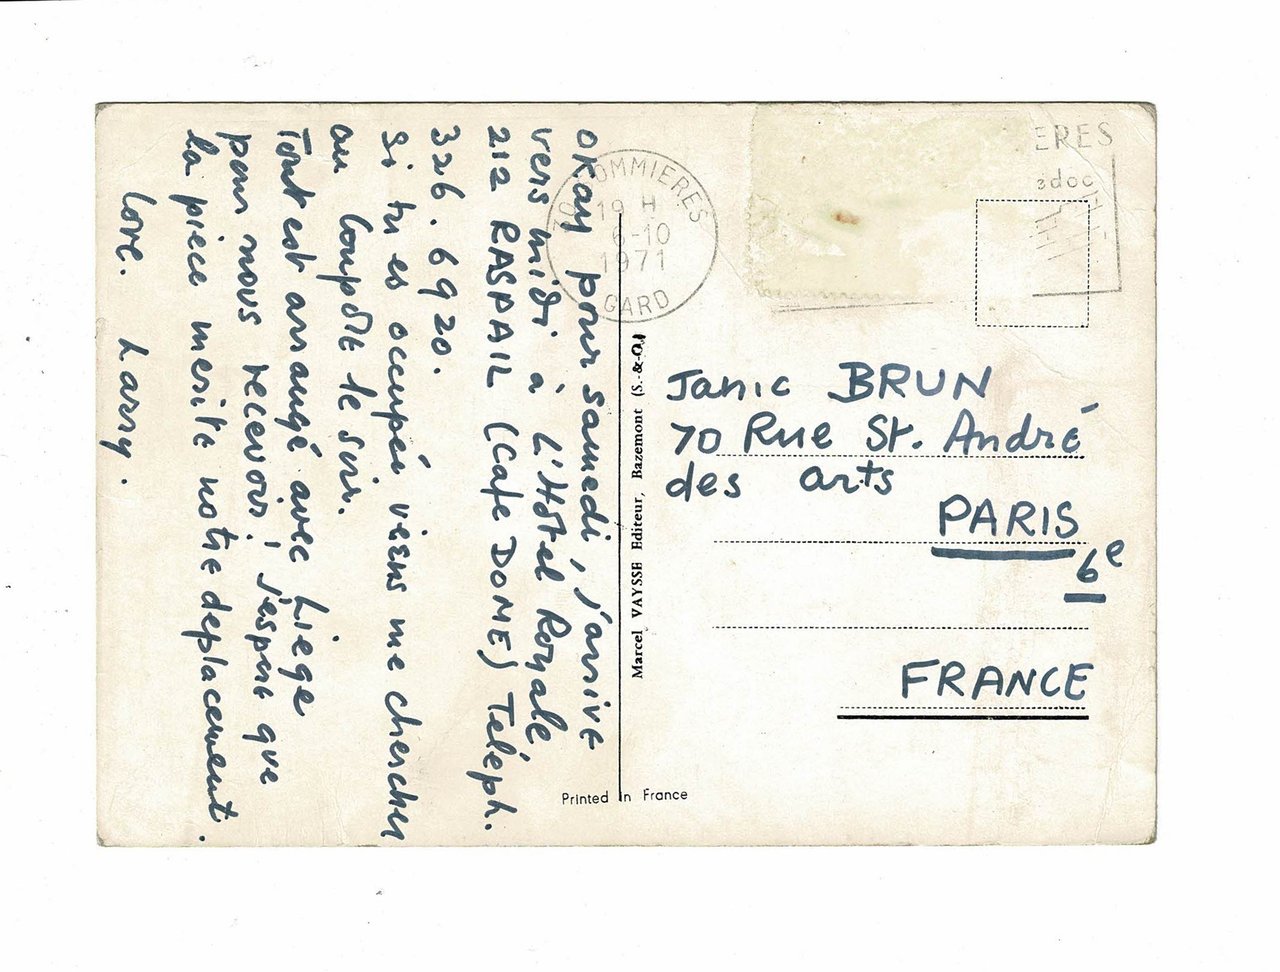 okay pour samedi, j'arrive
vers midi à L'Hôtel Royale
212 RASPAIL (Cafe DOME) Téléph.
326.6920.
Si tu es occupée viens me chercher
au Coupole le soir.
Tout est arrangé avec Liege
pour nous recevoir! j'espere que
la pièce merite notre deplacement.
love. Larry.
30 SOMMIERES
19 H
6-10
1971
GARD
ERES
doc
Marcel VAYSSE Editeur, Bazemont (S.-&-O.)
Janic BRUN
70 Rue St. André
des arts
PARIS
6e
FRANCE
Printed in France